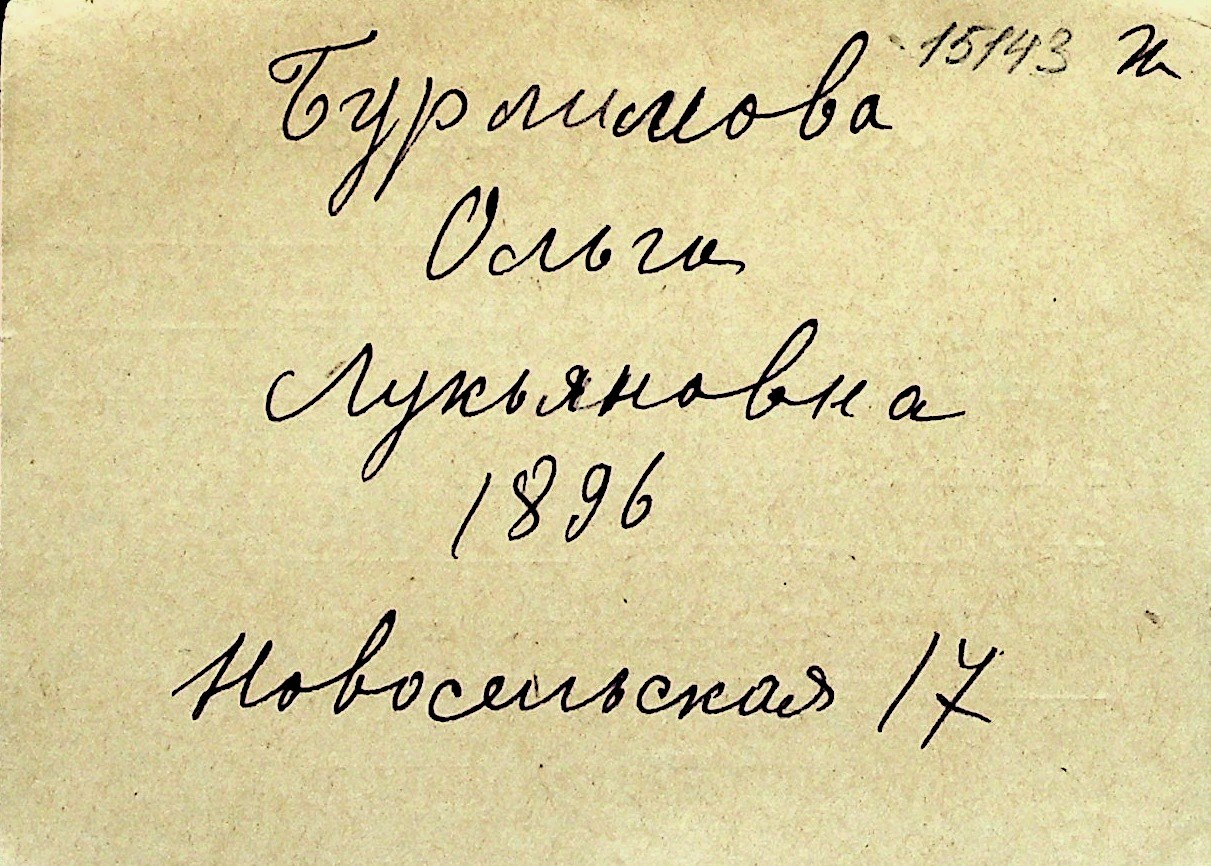 15143 н
Бурлимова
Ольга
Лукьяновна
1896
Новосельская 17